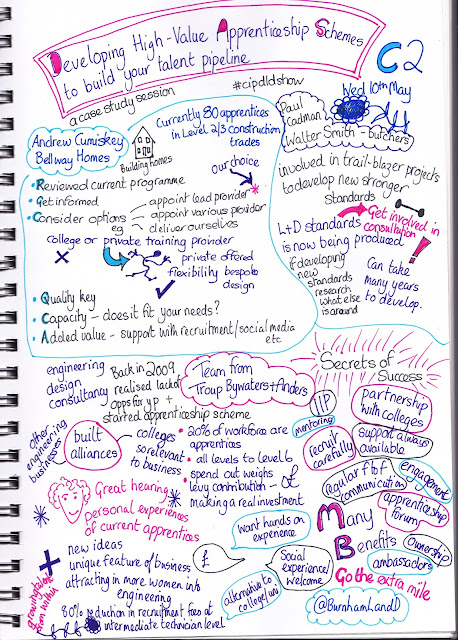 Developing High-Value Apprenticeship Schemes
to build your talent pipeline
C2
a case study session
#cipdldshow
Wed 10th May
Andrew Cumiskey
Bellway Homes
Building homes
Currently 80 apprentices
in Level 2/3 construction
trades
our choice
• Reviewed current programme
• Get informed
• Consider options
eg
appoint lead provider *
appoint various provider
deliver ourselves
college or private training provider
x
private offered
flexibility bespoke
design
• Quality key
• Capacity - does it fit your needs?
• Added value - support with recruitment/social media
etc
Paul
Cadman
Walter Smith - butchers
involved in trail-blazer projects
to develop new stronger
standards
L+D standards
is now being produced
Get involved in
consultation
!
if developing
new
standards
research
what else
is around
Can take
many years
to develop.
engineering
design
consultancy
Back in 2009
realised lack of
opps for yp +
started apprenticeship scheme
Team from
Troup Bywaters + Anders
other
engineering
businesses
built
alliances
colleges
so relevant
to business
• 20% of workforce are
apprentices
• all levels to level 6
• spend out weighs
levy contribution - £
making a real investment
Great hearing
personal experiences
of current apprentices
+
new ideas
unique feature of business
attracting in more women into
engineering
growing talent
from within
80% reduction in recruitment fees at
intermediate technician level
want hands on
experience
£
Social
experience/
welcome
alternative to
college/uni
Secrets of
Success
IIP
mentoring
partnership
with colleges
recruit
carefully
support always
available
regular f2f
communication
engagement
apprenticeship
forum
Many
Benefits
ownership
ambassadors
Go the extra mile
@BurnhamLandD